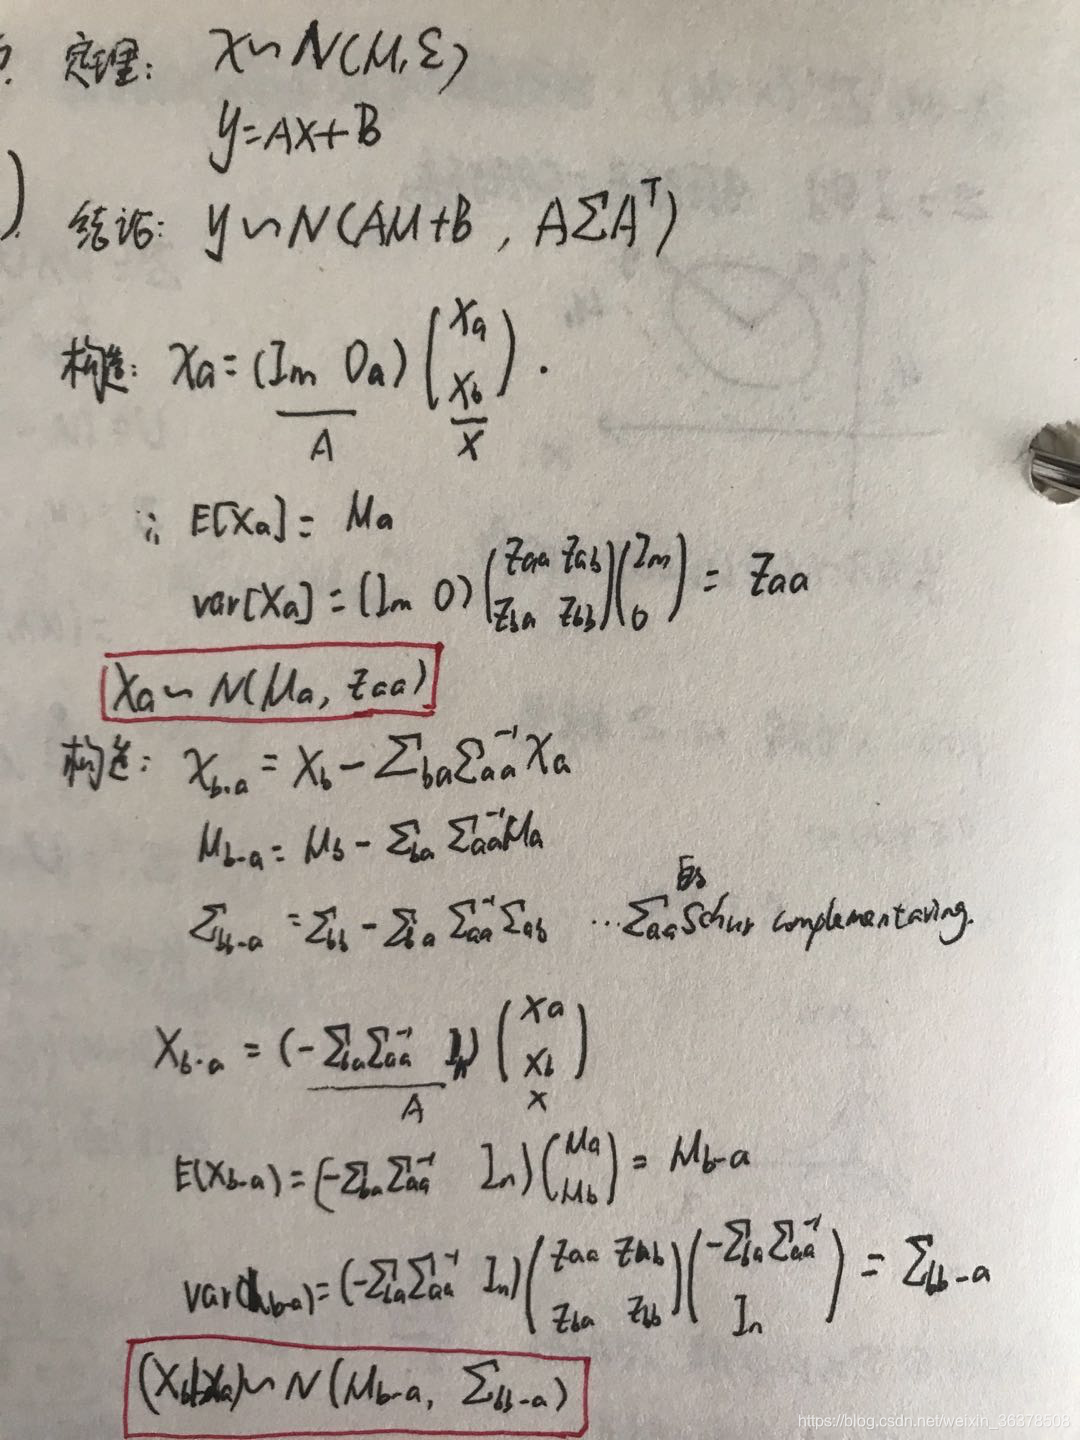 定理: X~N(μ,Σ)
y=AX+B
结论: y~N(Aμ+B, AΣAᵀ)
构造: Xa=(Im Oa)(Xa Xb).
A X
∴ E[Xa]= μa
var[Xa]=(Im 0)(Zaa Zab Zba Zbb)(Im 0)= Zaa
Xa~N(μa, Zaa)
构造: Xb·a = Xb-ΣbaΣaa⁻¹Xa
μb-a= μb-Σba Σaa⁻¹μa
Σbb-a =Σbb-Σba Σaa⁻¹Σab ...Σaa的Schur complementaring.
Xb-a = (-ΣbaΣaa⁻¹ In)(Xa Xb)
A x
E(Xb-a)=(-ΣbaΣaa⁻¹ In)(μa μb)= μb-a
var(Xb-a)=(-ΣbaΣaa⁻¹ In)(Zaa Zab Zba Zbb)(-ΣbaΣaa⁻¹ In)= Σbb-a
(Xb|Xa)~N(μb-a, Σbb-a)
https://blog.csdn.net/weixin_36378508